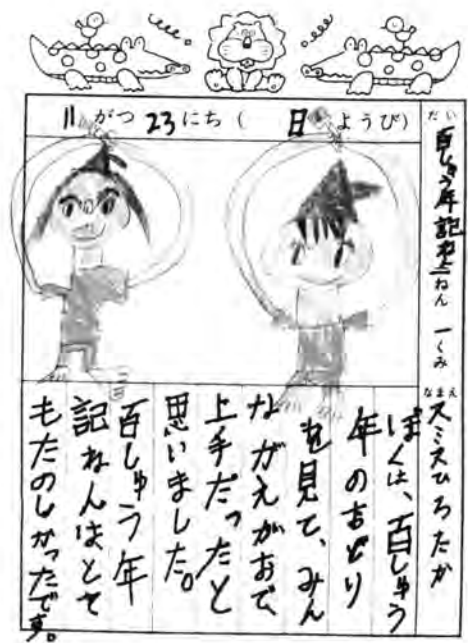 11がつ23にち(日ようび)
だい 百しゅう年記ね
一ねん 一くみ
なまえ スミスひろたか
ぼくは、百しゅう
年のおどり
を見て、みん
ながえがおで、
上手だったと
思いました。
百しゅう年
記ねんはとて
もたのしかったです。